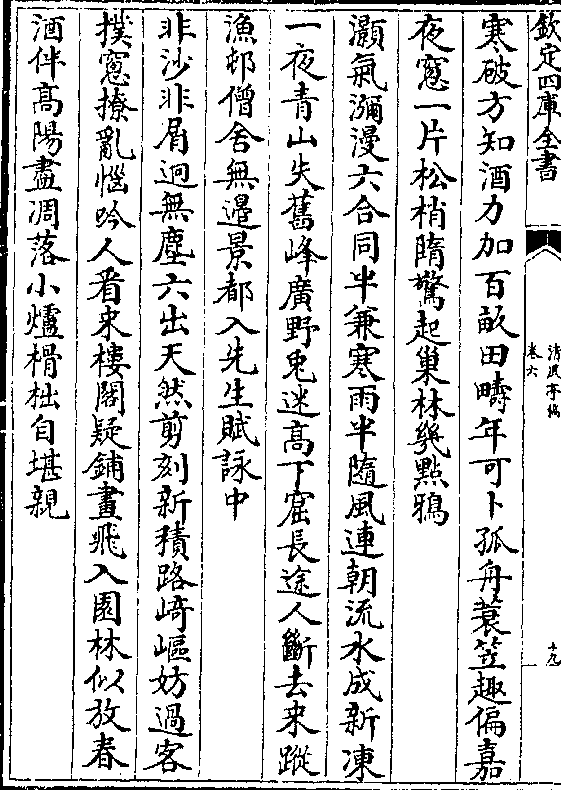 欽定四庫全書
清風亭稿
卷六
十九
寒破方知酒力加百畝田疇年可卜孤舟蓑笠趣偏嘉
夜窻一片松梢隋驚起巢林幾點鴉
灝氣瀰漫六合同半兼寒雨半隨風連朝流水成新凍
一夜青山失舊峰廣野兎迷高下窟長途人斷去来蹤
漁邨僧舍無邊景都入先生賦詠中
非沙非屑迥無塵六出天然剪刻新積路﨑嶇妨過客
撲窻撩亂惱吟人看来樓閣疑鋪畫飛入園林似放春
酒伴髙陽盡凋落小爐榾柮自堪親